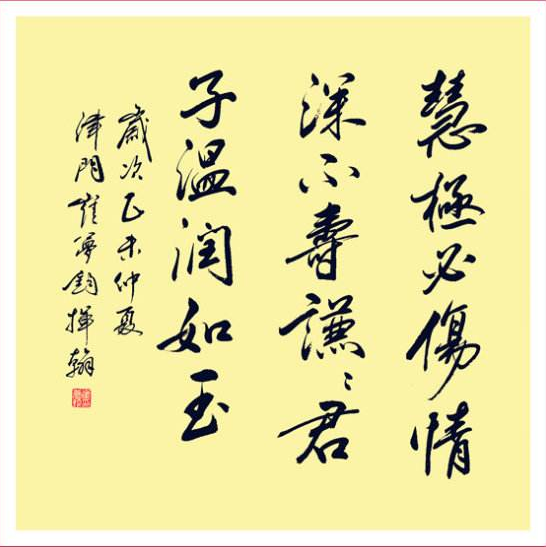 慧極必傷情
深不壽謙〻君
子溫潤如玉
歲次乙未仲夏
津門崔夢鈞揮翰